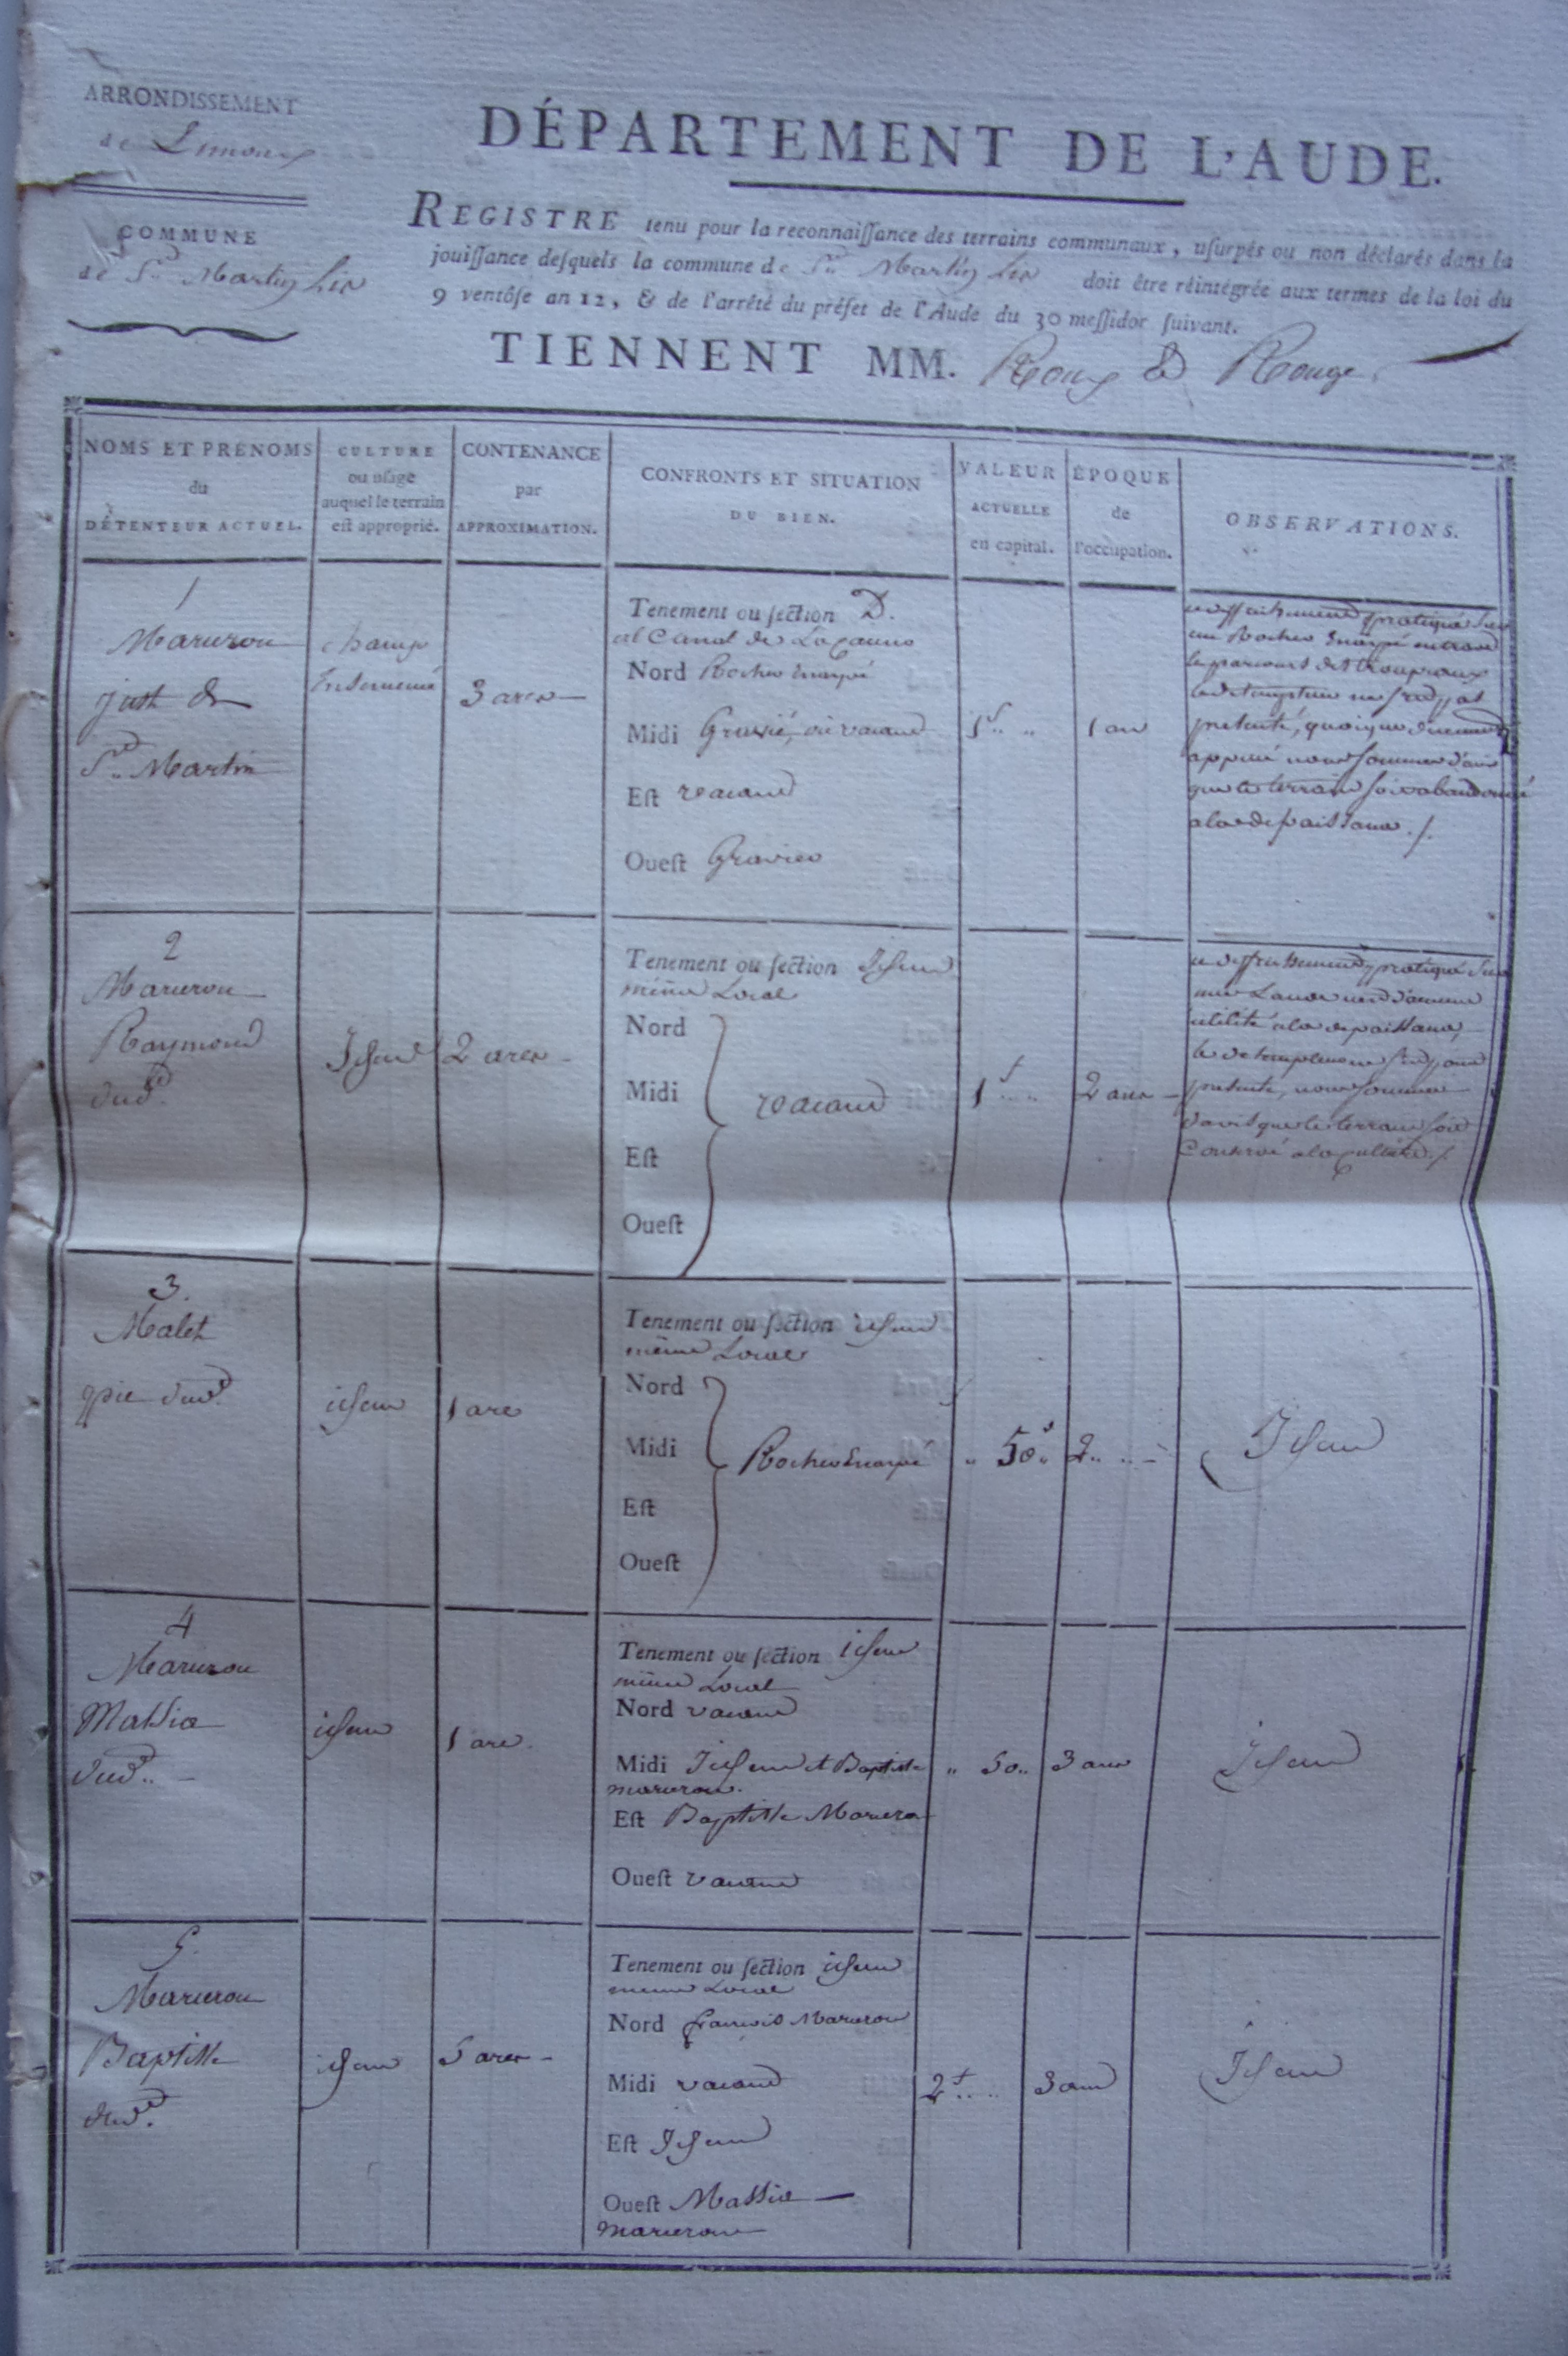 ARRONDISSEMENT
de Limoux
COMMUNE
de St. Martin Lis
DÉPARTEMENT DE L'AUDE.
REGISTRE tenu pour la reconnaiſſance des terrains communaux, uſurpés ou non déclarés dans la
jouiſſance deſquels la commune de St. Martin Lis doit être réintégrée aux termes de la loi du
9 ventôſe an 12, & de l'arrêté du préfet de l'Aude du 30 meſſidor ſuivant.
TIENNENT MM. Roux & Rouge
NOMS ET PRÉNOMS
du
DÉTENTEUR ACTUEL.
CULTURE
ou uſage
auquel le terrain
eſt approprié.
CONTENANCE
par
APPROXIMATION.
CONFRONTS ET SITUATION
DU BIEN.
VALEUR
ACTUELLE
en capital.
ÉPOQUE
de
l'occupation.
OBSERVATIONS.
1
Maruron
just de
St. Martin
champ
Ensemencé
3 ares
Tenement ou ſection D.
al Canal de
Nord Rocher Escarpé
Midi Gravié, et vacant
Eſt vacant
Oueſt Gravier
1f
1 an
ce deffrichement pratiqué sur
un Rocher Escarpé
le parcours des troupeaux
le detempteur ne sest pas
presenté, quoique
appellé nous sommes d'avis
que le terrain soit abandonné
a la depaissance ./.
2
Maruron
Raymond
dud.
Idem
2 ares
Tenement ou ſection Idem
même Local
Nord
Midi
Eſt
Oueſt
vacant
1f
2 ans
ce deffrichement pratiqué sur
une Lande
utilité a la depaissance,
le detempteur ne sest pas
presenté, nous sommes
d'avis que le terrain soit
Conservé a la culture ./.
3.
Malet
dud.
idem
1 are
Tenement ou ſection idem
même Local
Nord
Midi
Eſt
Oueſt
Rocher Escarpé
50
2
Idem
4
Maruron
Mathie
dud.
idem
1 are
Tenement ou ſection idem
même Local
Nord vacant
Midi Idem et Baptiste
maruron.
Eſt Baptiste Maruron
Oueſt vacant
50
3 ans
Idem
5.
Maruron
Baptiste
dud.
idem
5 ares
Tenement ou ſection idem
meme Local
Nord francois Maruron
Midi vacant
Eſt Idem
Oueſt Mathie
maruron
2f
3 ans
Idem